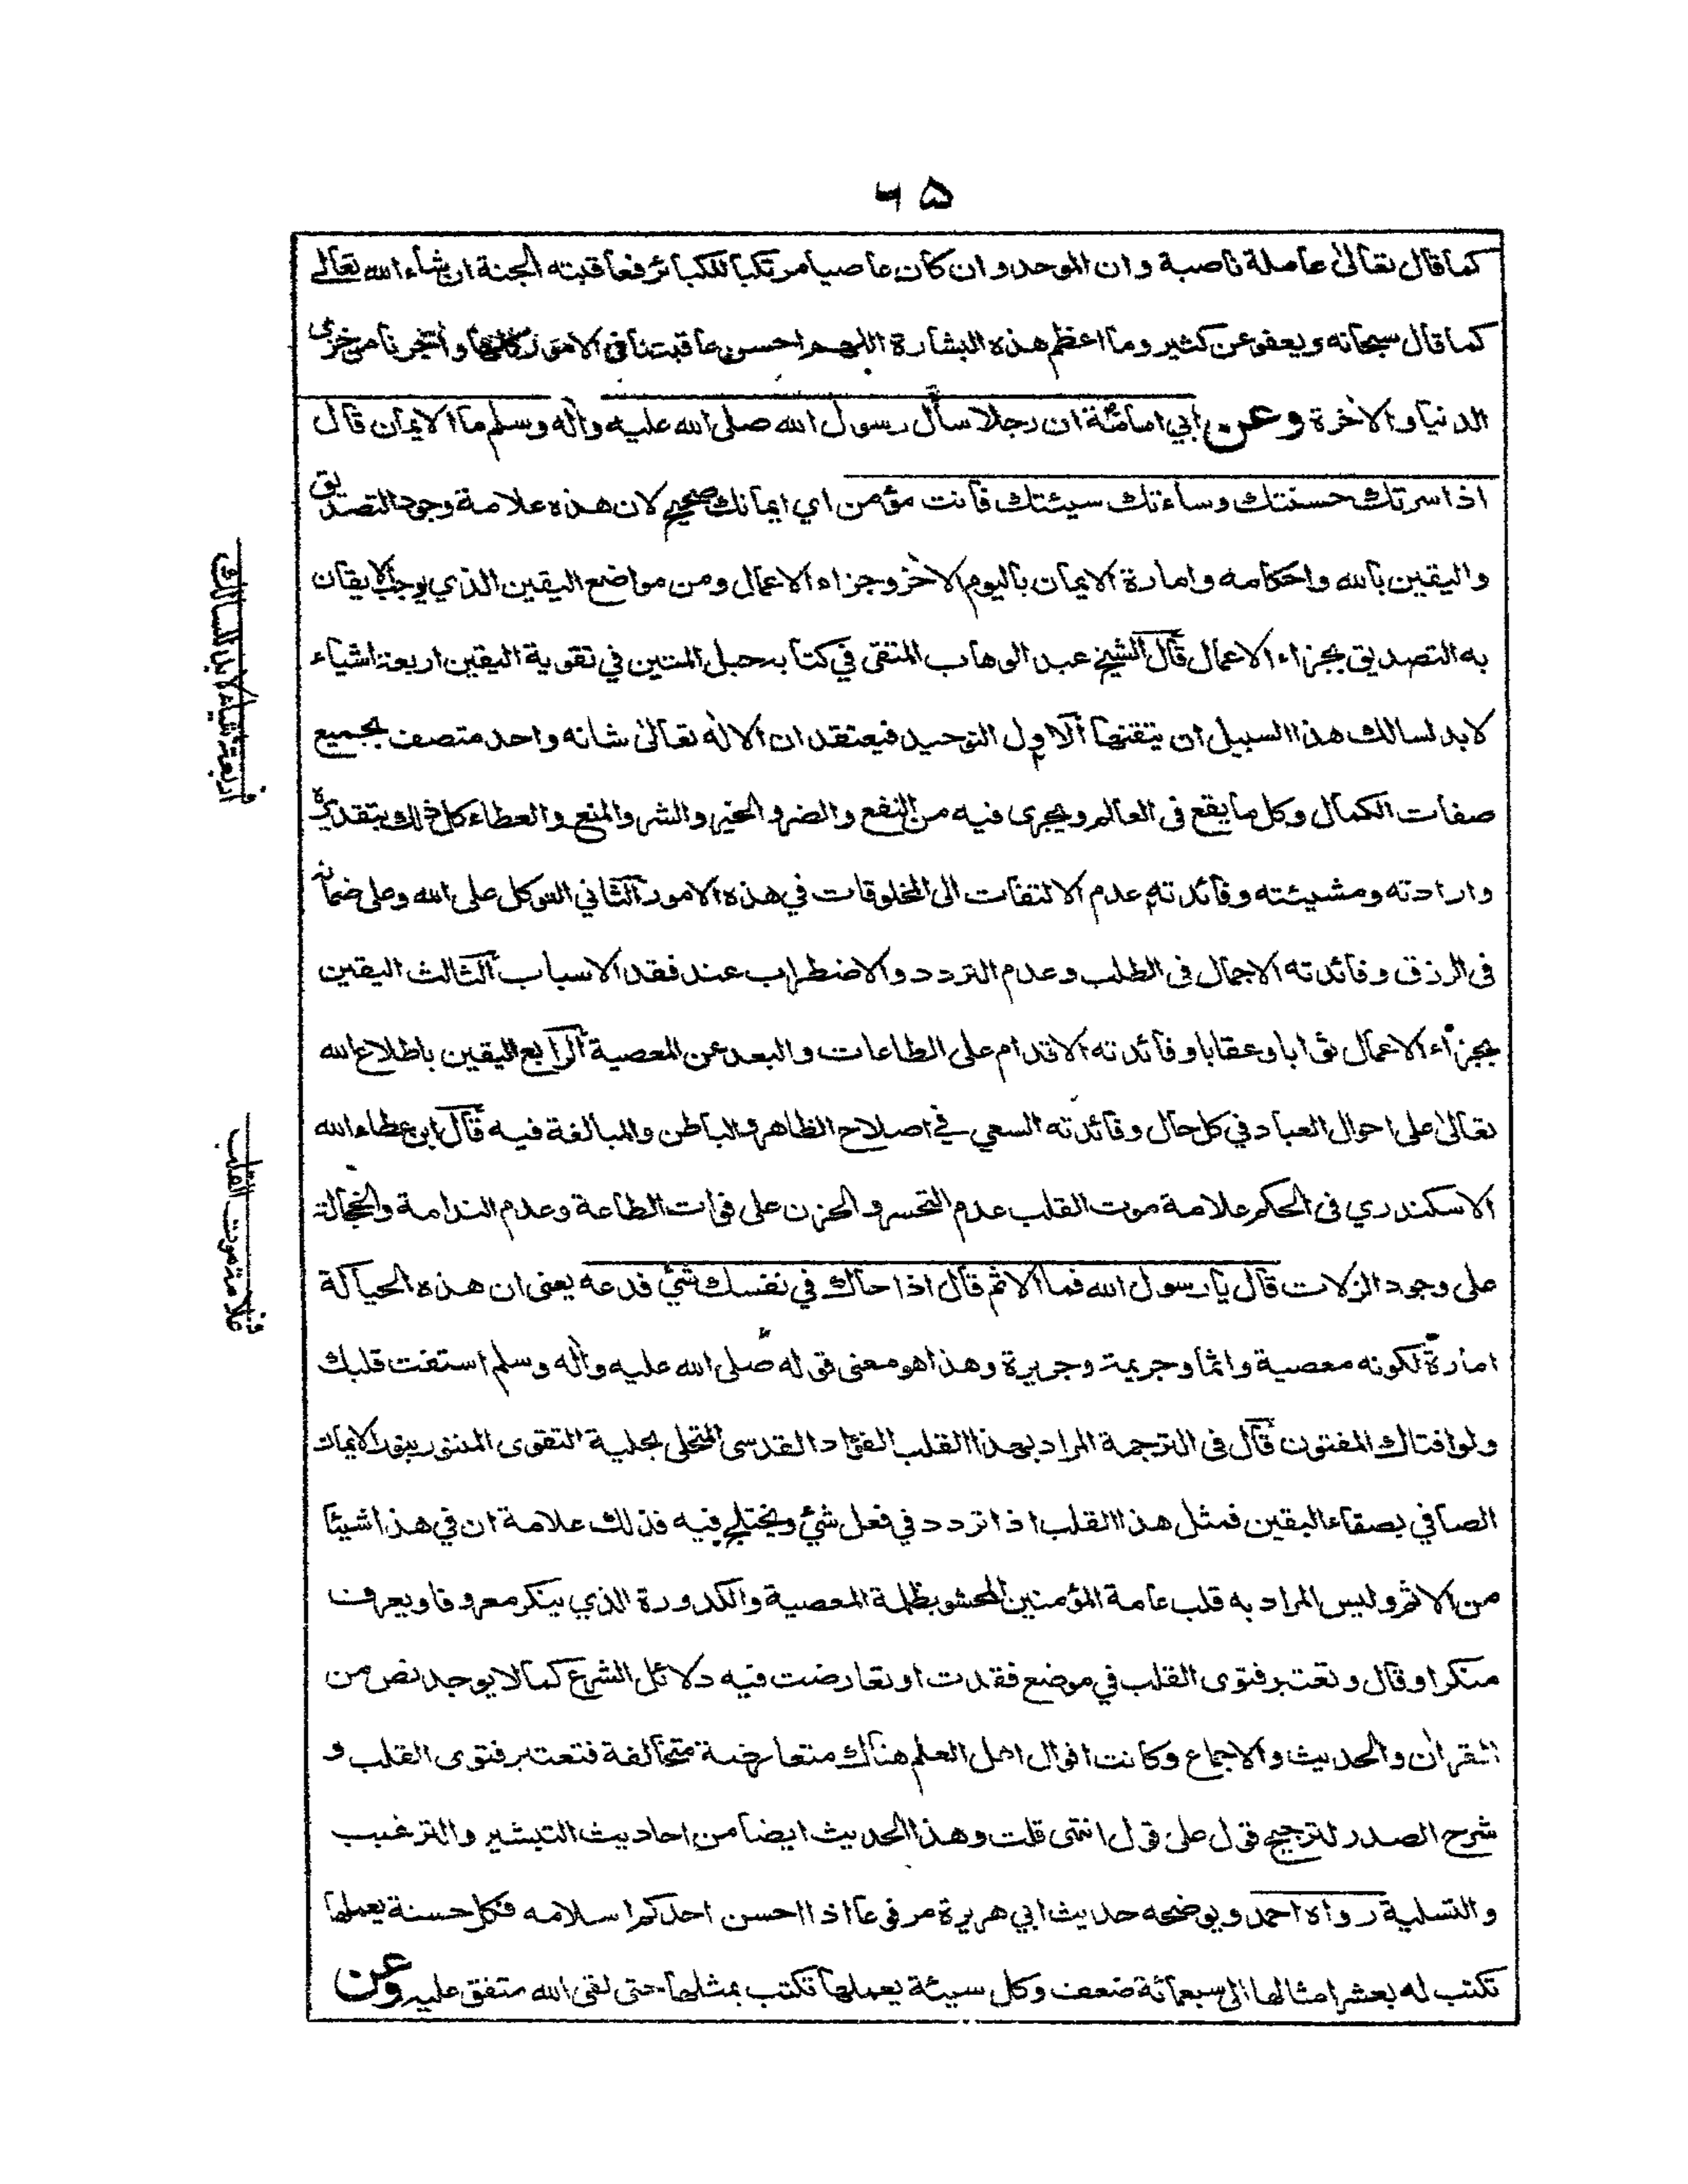 ٦٥
كما قال تعالى عاملة ناصبة وان الموحد وان كان عاصيا مرتكبا للكبائر فعاقبته الجنة ان شاء الله تعالى
كما قال سبحانه ويعفو عن كثير وما اعظم هذه البشارة اللهم احسن عاقبتنا في الامور كلها وأجرنا من خزي
الدنيا والآخرة وعن ابي امامة ان رجلا سأل رسول الله صلى الله عليه وآله وسلم ما الايمان قال
اذا سرتك حسنتك وساءتك سيئتك فانت مؤمن اي ايمانك صحيح لان هذه علامة وجود التصديق
واليقين بالله واحكامه وامارة الايمان باليوم الآخر وجزاء الاعمال ومن مواضع اليقين الذي يوجب الايقان
به التصديق بجزاء الاعمال قال الشيخ عبد الوهاب المتقي في كتابه حبل المتين في تقوية اليقين اربعة اشياء
لابد لسالك هذا السبيل ان يتقنها الاول التوحيد فيعتقد ان الاله تعالى شانه واحد متصف بجميع
صفات الكمال وكل ما يقع في العالم ويجري فيه من النفع والضر والخير والشر والمنع والعطاء كل ذلك بتقديره
وارادته ومشيئته وفائدته عدم الالتفات الى المخلوقات في هذه الامور الثاني التوكل على الله وعلى ضمانه
في الرزق وفائدته الاجمال في الطلب وعدم التردد والاضطراب عند فقد الاسباب الثالث اليقين
بجزاء الاعمال ثوابا وعقابا وفائدته الاقدام على الطاعات والبعد عن المعصية الرابع اليقين باطلاع الله
تعالى على احوال العباد في كل حال وفائدته السعي في اصلاح الظاهر والباطن والمبالغة فيه قال ابن عطاء الله
الاسكندري في الحكم علامة موت القلب عدم التحسر والحزن على فوات الطاعة وعدم الندامة والخجالة
على وجود الزلات قال يا رسول الله فما الاثم قال اذا حاك في نفسك شئ فدعه يعني ان هذه الحياكة
امارة لكونه معصية واثما وجريمة وجريرة وهذا هو معنى قوله صلى الله عليه وآله وسلم استفت قلبك
ولو افتاك المفتون قال في الترجمة المراد بهذا القلب الفؤاد القدسي المتحلي بحلية التقوى المنور بنور الايمان
الصافي بصفاء اليقين فمثل هذا القلب اذا تردد في فعل شئ ويختلج فيه فذلك علامة ان في هذا شيئا
من الاثم وليس المراد به قلب عامة المؤمنين المحشو بظلمة المعصية والكدورة الذي ينكر معروفا ويعرف
منكرا وقال وتعتبر فتوى القلب في موضع فقدت او تعارضت فيه دلائل الشرع كما لا يوجد نص من
القرآن والحديث والاجماع وكانت اقوال اهل العلم هناك متعارضة متخالفة فتعتبر فتوى القلب و
شرح الصدر لترجيح قول على قول انتهى قلت وهذا الحديث ايضا من احاديث التبشير والترغيب
والتسلية رواه احمد ويوضحه حديث ابي هريرة مرفوعا اذا احسن احدكم اسلامه فكل حسنة يعملها
تكتب له بعشر امثالها الى سبعمائة ضعف وكل سيئة يعملها تكتب بمثلها حتى لقي الله متفق عليه وعن
ف اربعة اشياء لابد للسالك
ف علامة موت القلب